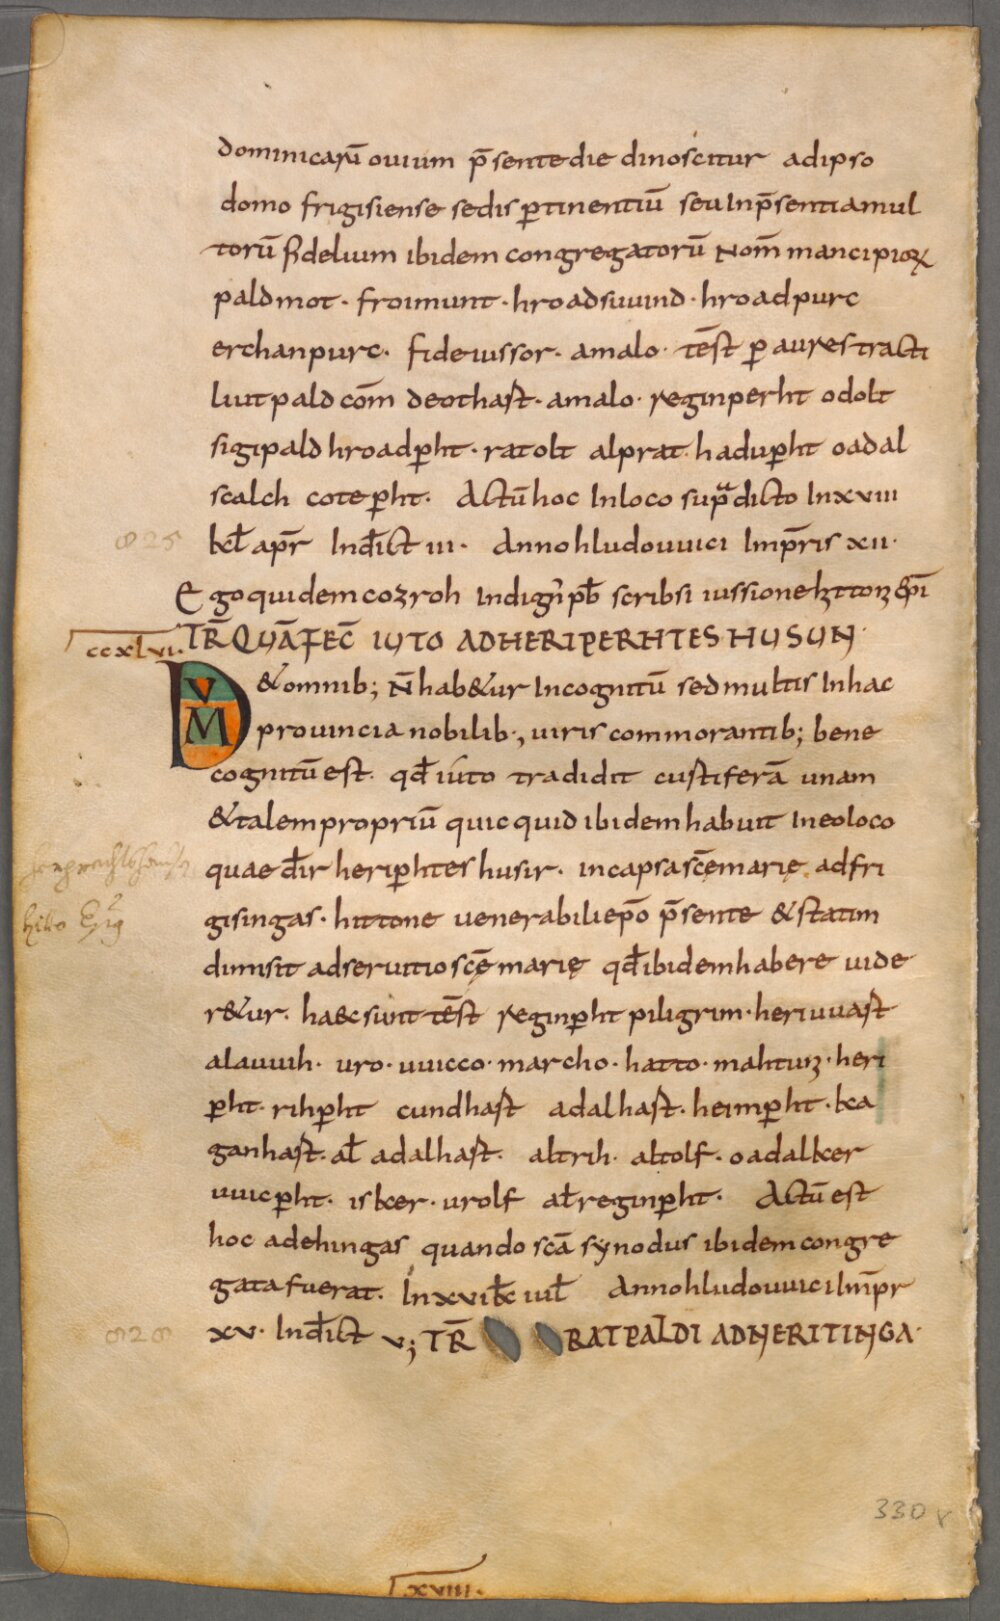 dominicarū ouium p̄sentedie dinoscitur adipso
domo frigisiense sedis ꝑtinentiū seuInp̄sentiamul
torū fidelium ibidem congregatorū Nom̄ mancipioꝝ
paldmot · froimunt · hroadsuuind · hroadpurc
erchanpurc · fideiussor · amalo · tēst ꝑ aurestracti
liutpald com̄ deothast · amalo · reginperht odolt
sigipald hroadꝑht · ratolt alprat · haduꝑht oadal
scalch coteꝑht · Actū hoc Inloco sup̄dicto Inxviii
kƚ apr̄ Indict̄ iii · Anno hludouuici Imp̄ris xii ·
825
Ego quidem cozroh Indign̄ pb̄ scribsi iussione hittonis ep̄i
ccxlvi.
TR̄ QUĀ FEC̄ IUTO AD HERIPERHTESHUSUN ·
DUM
&omnib; N̄ hab&ur Incognitū sed multis Inhac
prouincia nobilib ·, uiris commorantib; bene
cognitū est · qd̄ iuto tradidit custiferā unam
&talem propriū quicquid ibidem habuit Ineoloco
quae dr̄ heriꝑhteshusir · incapsa scē marię adfri
gisingas · hittone uenerabili ep̄o p̄sente & statim
dimisit adseruitio scē marię qd̄ ibidem habere uide
r&ur · haec sunt tēst reginꝑht piligrim · heriuuast
alauuih · uro · uuicco · marcho · hatto · mahtuni · heri
ꝑht · rihꝑht cundhast adalhast · heimꝑht · kea
ganhast · aƚ adalhast · altrih · altolf · oadalker
uuicꝑht · isker · urolf aƚ reginꝑht · Actū est
hoc adehingas quando scā synodus ibidem congre
gata fuerat · Inxvi kƚ iuƚ Anno hludouuici Imp̄r
xv · Indict̄ v; TR̄ RATPALDI AD HERITINGA ·
828
hitto Epūs
330 v
Lxviii ·